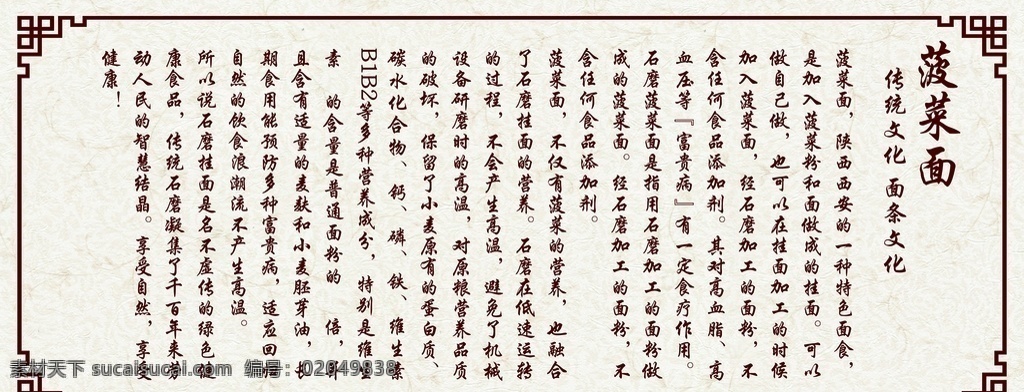 菠菜面
传统文化 面条文化
菠菜面，陕西西安的一种特色面食，
是加入菠菜粉和面做成的挂面。可以
做自己做，也可以在挂面加工的时候
加入菠菜面，经石磨加工的面粉，不
含任何食品添加剂。其对高血脂、高
血压等『富贵病』有一定食疗作用。
石磨菠菜面是指用石磨加工的面粉做
成的菠菜面。经石磨加工的面粉，不
含任何食品添加剂。
菠菜面，不仅有菠菜的营养，也融合
了石磨挂面的营养。石磨在低速运转
的过程，不会产生高温，避免了机械
设备研磨时的高温，对原粮营养品质
的破坏，保留了小麦原有的蛋白质、
碳水化合物、钙、磷、铁、维生素
B1B2等多种营养成分，特别是维生
素 的含量是普通面粉的 倍，
且含有适量的麦麸和小麦胚芽油，长
期食用能预防多种富贵病，适应回归
自然的饮食浪潮流不产生高温。
所以说石磨挂面是名不虚传的绿色健
康食品，传统石磨凝集了千百年来劳
动人民的智慧结晶。享受自然，享受
健康！
素材天下 sucaisucai.com 编号：02049838